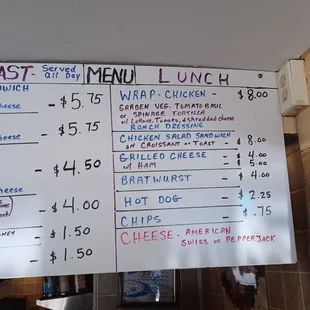 AST - Served All Day
WICH
cheese - $5.75
- $5.75
cheese - $4.50
cheese
- $4.00
NEY - $1.50
- $1.50
MENU LUNCH
WRAP - CHICKEN - $8.00
GARDEN VEG. TOMATO BASIL
OR SPINACH TORTILLA
w/ Lettuce, Tomato, & shredded cheese
RANCH DRESSING
CHICKEN SALAD SANDWICH - $8.00
ON CROISSANT OR TOAST
GRILLED CHEESE - $4.00
w/ HAM $5.00
BRATWURST - $4.00
HOT DOG - $2.25
CHIPS - $.75
CHEESE - AMERICAN
SWISS OR PEPPERJACK